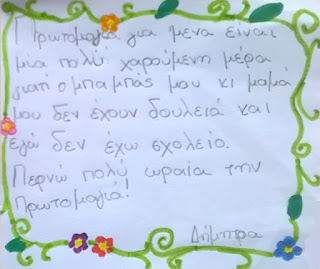 Πρωτομαγιά για μένα είναι
μια πολύ χαρούμενη μέρα
γιατί ο μπαμπάς μου κι μαμά
μου δεν έχουν δουλειά και
εγώ δεν έχω σχολείο.
Περνώ πολύ ωραία την
Πρωτομαγιά!
Δήμητρα